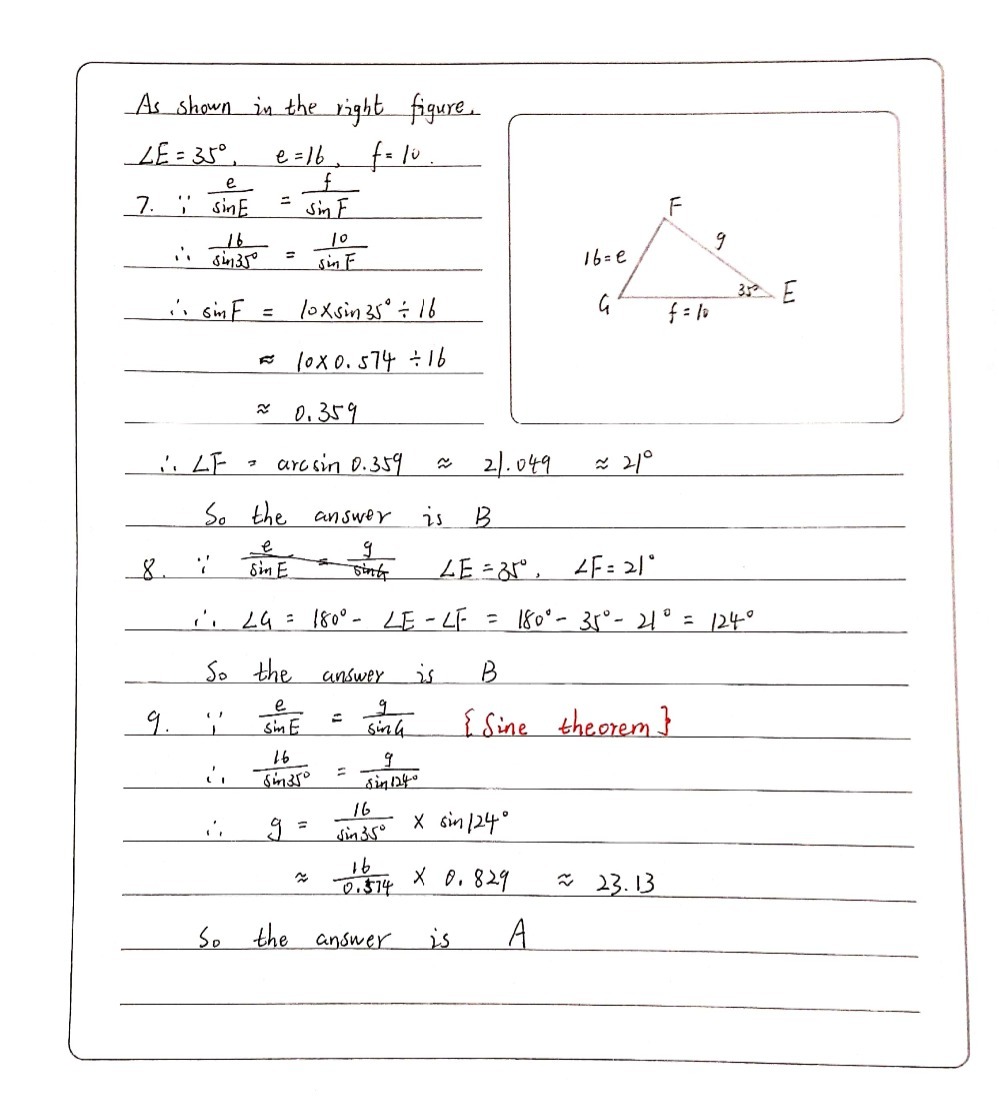 As shown in the right figure.
∠E = 35°, e = 16, f = 10.
7. ∵ e/sinE = f/sinF
∴ 16/sin35° = 10/sinF
∴ sinF = 10×sin35°÷16
≈ 10×0.574÷16
≈ 0.359
∴ ∠F = arcsin 0.359 ≈ 21.049 ≈ 21°
So the answer is B
8. ∵ e/sinE = g/sinG ∠E = 35°, ∠F = 21°
∴ ∠G = 180° - ∠E - ∠F = 180° - 35° - 21° = 124°
So the answer is B
9. ∵ e/sinE = g/sinG {Sine theorem}
∴ 16/sin35° = g/sin124°
∴ g = 16/sin35° × sin124°
≈ 16/0.574 × 0.829 ≈ 23.13
So the answer is A
F
g
16=e
35°
E
G
f=10